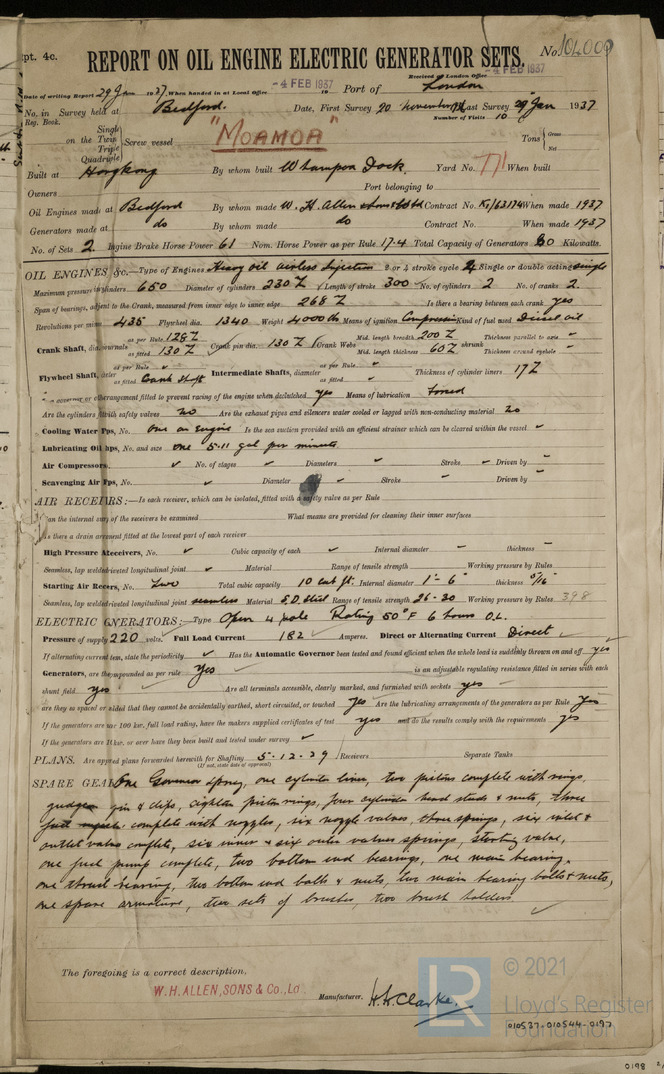 pt. 4c.
REPORT ON OIL ENGINE ELECTRIC GENERATOR SETS.
No. 104000
Received at London Office
-4 FEB 1937
Date of writing Report 29 Jan 1937. When handed in at Local Office -4 FEB 1937 19 Port of London
No. in Survey held at Bedford. Date, First Survey 20 November Last Survey 29 Jan 1937
Reg. Book. Number of Visits 10
Single
on the Twin
Triple
Quadruple
Screw vessel "MOAMOA" Tons Gross
Net
Built at Hongkong By whom built Whampoa Dock. Yard No. 771 When built
Owners Port belonging to
Oil Engines made at Bedford By whom made W. H. Allen Sons & Co Ltd Contract No. When made 1937
Generators made at do By whom made do Contract No. When made 1937
No. of Sets 2 Engine Brake Horse Power 61 Nom. Horse Power as per Rule 17.4 Total Capacity of Generators Kilowatts.
OIL ENGINES, &c.—Type of Engines Heavy oil airless Injection 2 or 4 stroke cycle 4 Single or double acting single
Maximum pressure in cylinders 650 Diameter of cylinders 230 Length of stroke 300 No. of cylinders 2 No. of cranks 2
Span of bearings, adjacent to the Crank, measured from inner edge to inner edge 268 Is there a bearing between each crank yes
Revolutions per minute 435 Flywheel dia. 1340 Weight 4000 lbs Means of ignition Compression Kind of fuel used Diesel oil
Crank Shaft, dia. of journals as per Rule 128 as fitted 130 Crank pin dia. 130 Crank Webs Mid. length breadth 200 Mid. length thickness 60 shrunk Thickness parallel to axis Thickness around eyehole
Flywheel Shaft, diameter as per Rule as fitted Crank shaft Intermediate Shafts, diameter as per Rule as fitted Thickness of cylinder liners 17
governor or other arrangement fitted to prevent racing of the engine when declutched yes Means of lubrication forced
Are the cylinders fitted with safety valves no Are the exhaust pipes and silencers water cooled or lagged with non-conducting material no
Cooling Water Pumps, No. one on engine Is the sea suction provided with an efficient strainer which can be cleared within the vessel ✓
Lubricating Oil Pumps, No. and size one 5.11 gal per minute
Air Compressors, ✓ No. of stages Diameters Stroke Driven by
Scavenging Air Pumps, No. ✓ Diameter Stroke Driven by
AIR RECEIVERS:—Is each receiver, which can be isolated, fitted with a safety valve as per Rule
Can the internal surfaces of the receivers be examined What means are provided for cleaning their inner surfaces
Is there a drain arrangement fitted at the lowest part of each receiver
High Pressure Air Receivers, No. ✓ Cubic capacity of each ✓ Internal diameter thickness
Seamless, lap welded or riveted longitudinal joint ✓ Material Range of tensile strength Working pressure by Rules
Starting Air Receivers, No. Two Total cubic capacity 10 cub ft. Internal diameter 1'-6" thickness 5/16"
Seamless, lap welded or riveted longitudinal joint seamless Material S.D. Steel Range of tensile strength 26-30 Working pressure by Rules 398
ELECTRIC GENERATORS:—Type Open 4 pole Rating 50°F 6 hours O.L.
Pressure of supply 220 volts. Full Load Current 182 Amperes. Direct or Alternating Current Direct
If alternating current system, state the periodicity ✓ Has the Automatic Governor been tested and found efficient when the whole load is suddenly thrown on and off yes
Generators, are they compounded as per rule Yes is an adjustable regulating resistance fitted in series with each
shunt field yes Are all terminals accessible, clearly marked, and furnished with sockets yes
are they so spaced or shielded that they cannot be accidentally earthed, short circuited, or touched Yes Are the lubricating arrangements of the generators as per Rule Yes
If the generators are under 100 kw. full load rating, have the makers supplied certificates of test yes and do the results comply with the requirements yes
If the generators are 100 kw. or over have they been built and tested under survey ✓
PLANS. Are approved plans forwarded herewith for Shafting 5.12.29 Receivers Separate Tanks
(If not, state date of approval)
SPARE GEAR One Governor spring, one cylinder liner, two pistons complete with rings,
gudgeon pin & clips, eighteen piston rings, four cylinder head studs & nuts, three
complete with nozzles, six nozzle valves, three springs, six inlet &
outlet valves complete, six inner & six outer valves springs, starting valve,
one fuel pump complete, two bottom end bearings, one main bearing,
one thrust bearing, two bottom end bolts & nuts, two main bearing bolts & nuts,
one spare armature, two sets of brushes, two brush holders ✓
The foregoing is a correct description,
W. H. ALLEN, SONS & Co., Ld. Manufacturer. H. H. Clarke.
LR
© 2021
Lloyd's Register
Foundation
010537-010544-0197
0198